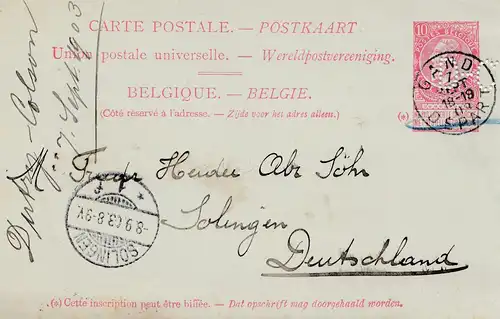 CARTE POSTALE. — POSTKAART
Union postale universelle. — Wereldpostvereeniging.
BELGIQUE. — BELGIE.
(Côté réservé à l'adresse. — Zijde voor het adres allem.)
(*)
10
GAND
18-19
Colson
7. Sept. 1903
Fredr Herder Abr Söhn
Solingen
Deutschland
SOLINGEN
-8.9.03.8-9V.
* 1 *
(*) Cette inscription peut être biffée. — Dat opschrift mag doorgehaald worden.